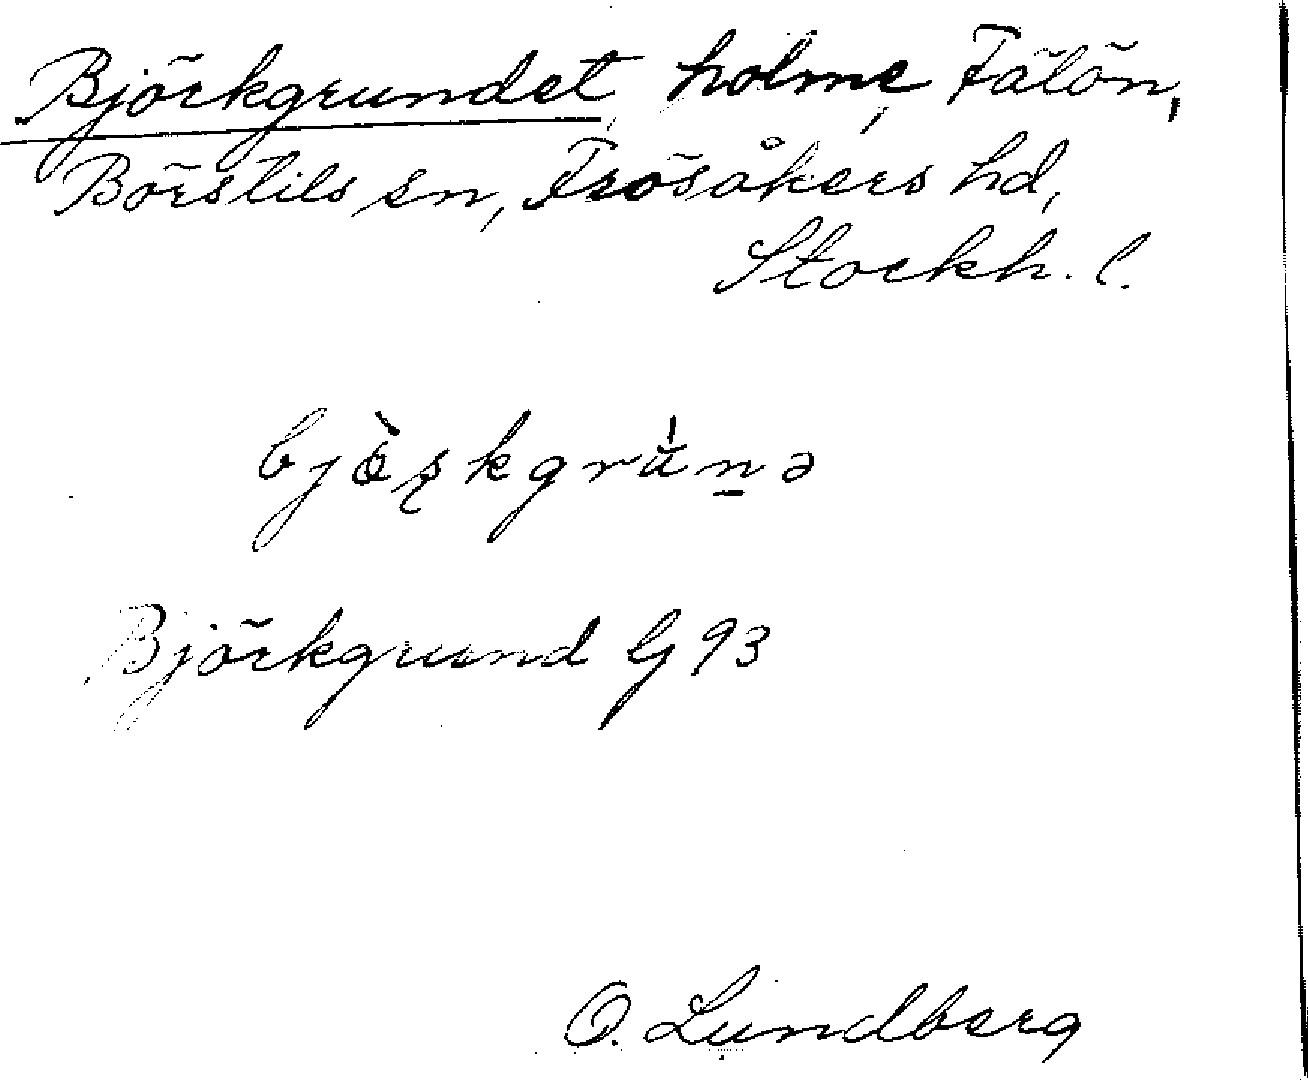 Björkgrundet, holme, Fälön,
Börstils sn, Frösåkers hd,
Stockh. l.
bjö̀rkgrúnə
Björkgrund G 93
O. Lundberg